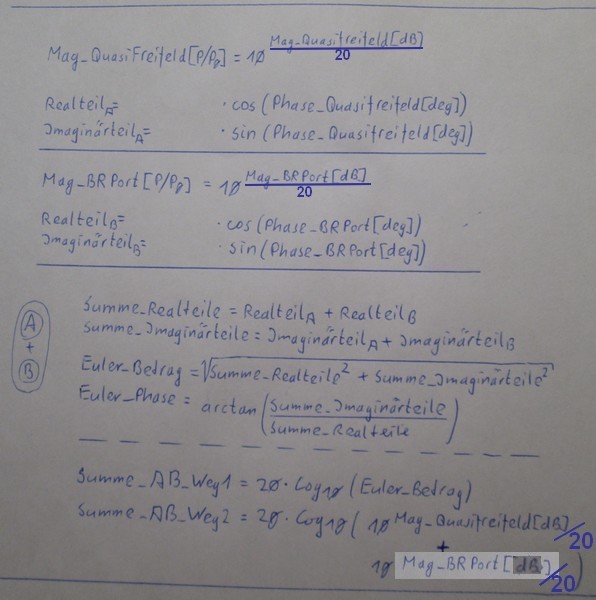 Mag_QuasiFreifeld[P/P0] = 10^(Mag_Quasifreifeld[dB]/20)
Realteil_A= · cos(Phase_Quasifreifeld[deg])
Imaginärteil_A= · sin(Phase_Quasifreifeld[deg])
Mag_BRPort[P/P0] = 10^(Mag_BRPort[dB]/20)
Realteil_B= · cos(Phase_BRPort[deg])
Imaginärteil_B= · sin(Phase_BRPort[deg])
A
+
B
Summe_Realteile = Realteil_A + Realteil_B
Summe_Imaginärteile = Imaginärteil_A + Imaginärteil_B
Euler_Betrag = √(Summe_Realteile² + Summe_Imaginärteile²)
Euler_Phase = arctan(Summe_Imaginärteile/Summe_Realteile)
Summe_AB_Weg1 = 20·Log10(Euler_Betrag)
Summe_AB_Weg2 = 20·Log10(10^Mag_Quasifreifeld[dB]/20
+
10^Mag_BRPort[dB]/20)